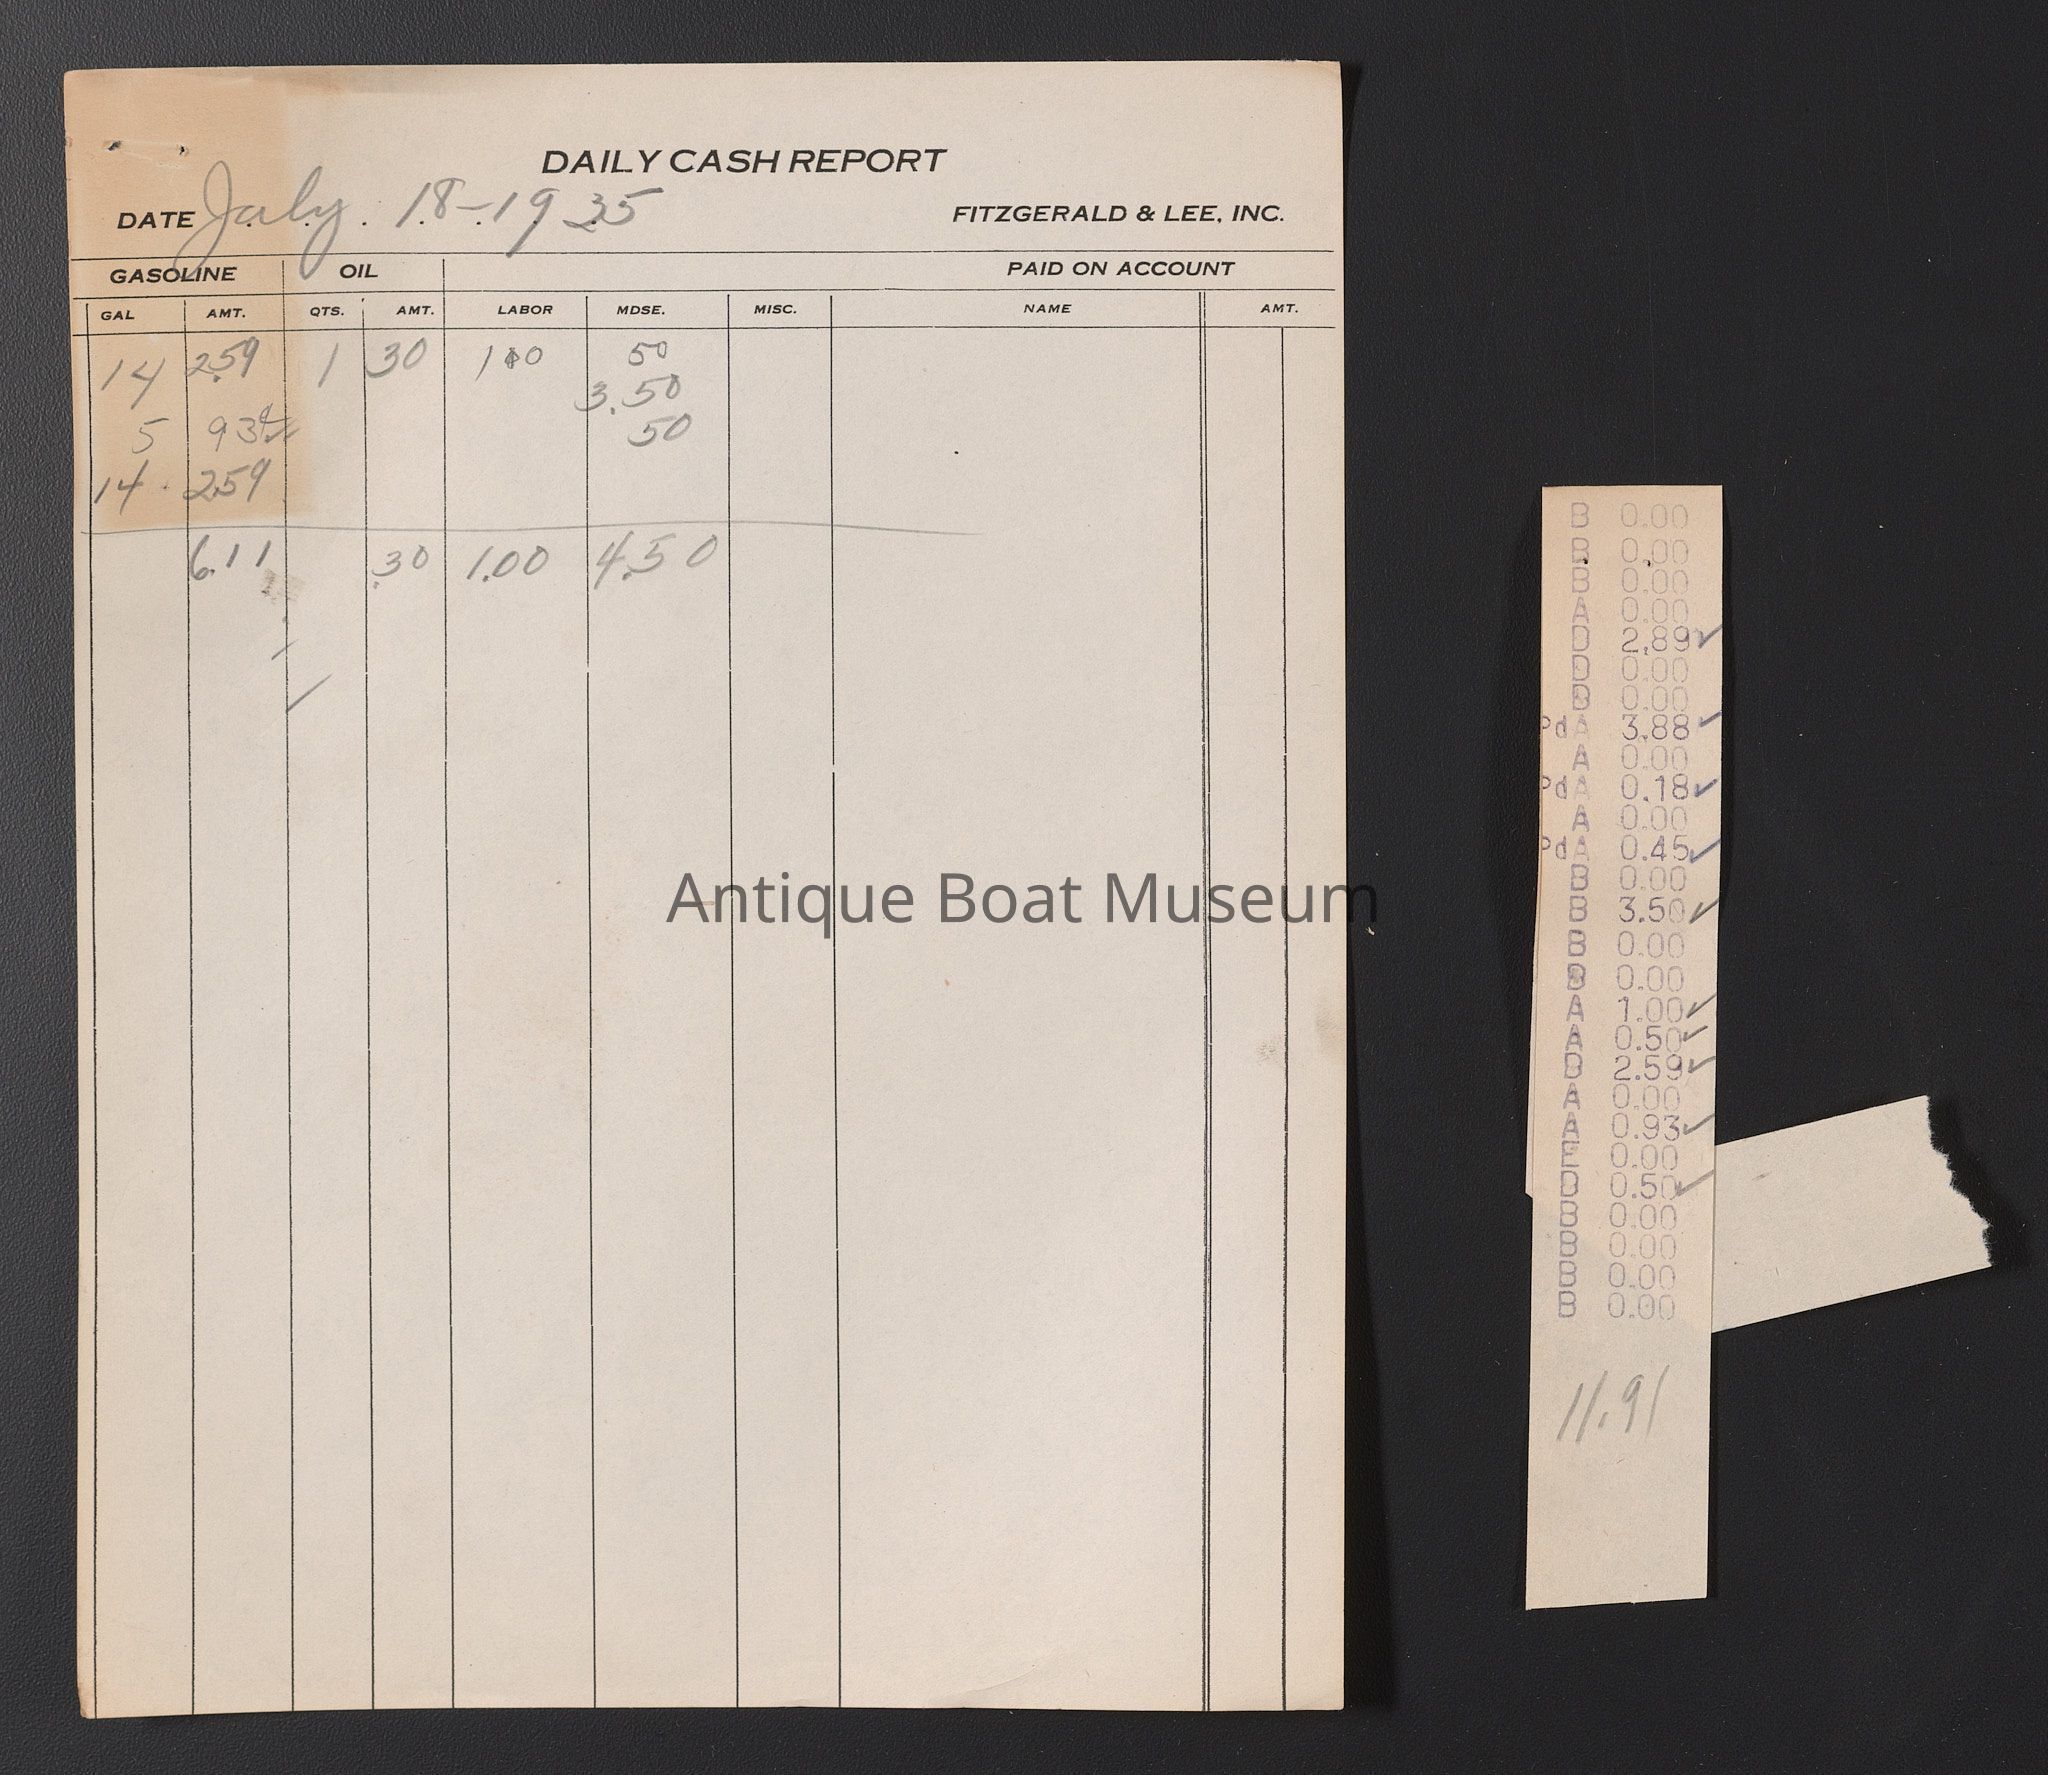 DAILY CASH REPORT
DATE July 18-1935 FITZGERALD & LEE, INC.
GASOLINE OIL PAID ON ACCOUNT
GAL AMT. QTS. AMT. LABOR MDSE. MISC. NAME AMT.
14 2.59 1 30 100 50
3.50
5 93 50
14 2.59
6.11 .30 1.00 4.50
Antique Boat Museum
B 0.00
B 0.00
B 0.00
A 0.00
D 2.89 ✓
D 0.00
B 0.00
Pd A 3.88 ✓
A 0.00
Pd A 0.18 ✓
A 0.00
Pd A 0.45 ✓
B 0.00
B 3.50 ✓
B 0.00
B 0.00
A 1.00 ✓
A 0.50 ✓
D 2.59 ✓
A 0.00
A 0.93 ✓
E 0.00
D 0.50 ✓
B 0.00
B 0.00
B 0.00
B 0.00
11.91